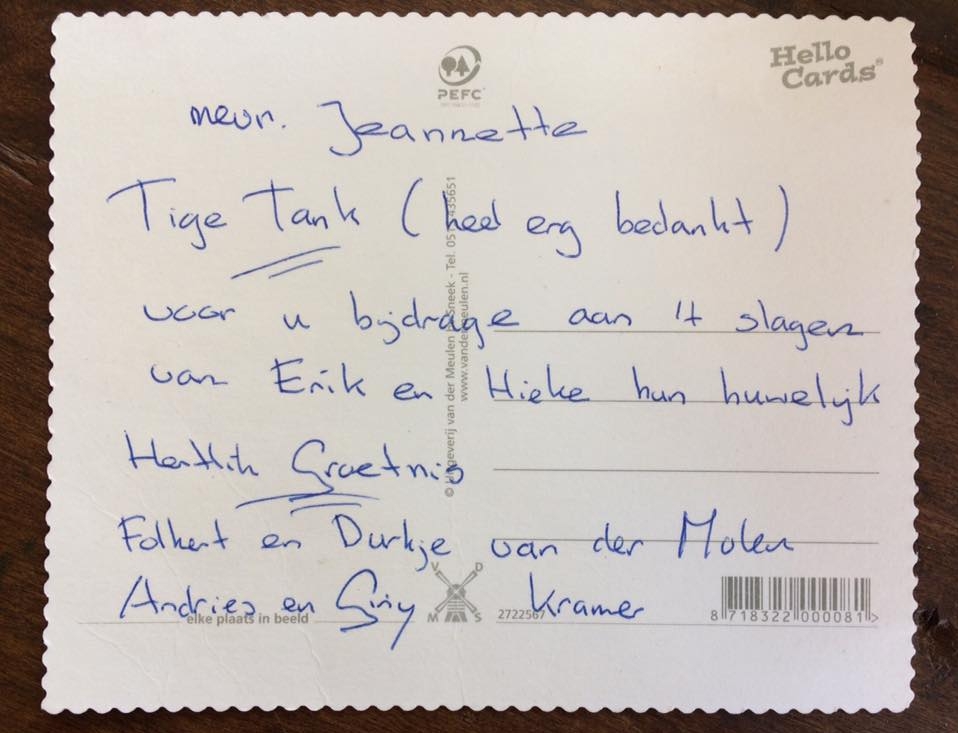 Hello
Cards®
PEFC
mevr. Jeannette
Tige Tank (heel erg bedankt)
voor u bijdrage aan 't slagen
van Erik en Hieke hun huwelijk
Hertlik Groetnis
Folkert en Durkje van der Molen
Andries en Siny Kramer
© Uitgeverij van der Meulen Sneek - Tel. 051 435651
www.vandermeulen.nl
V D
M S
elke plaats in beeld
2722567
8 718322 000081 >